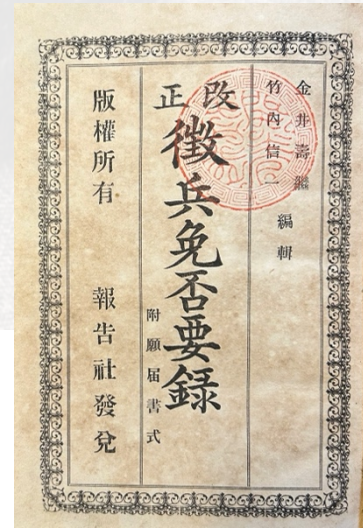 金井
竹内信一
編輯
改正
徴兵免否要録
附願届書式
版權所有
報告社發兌